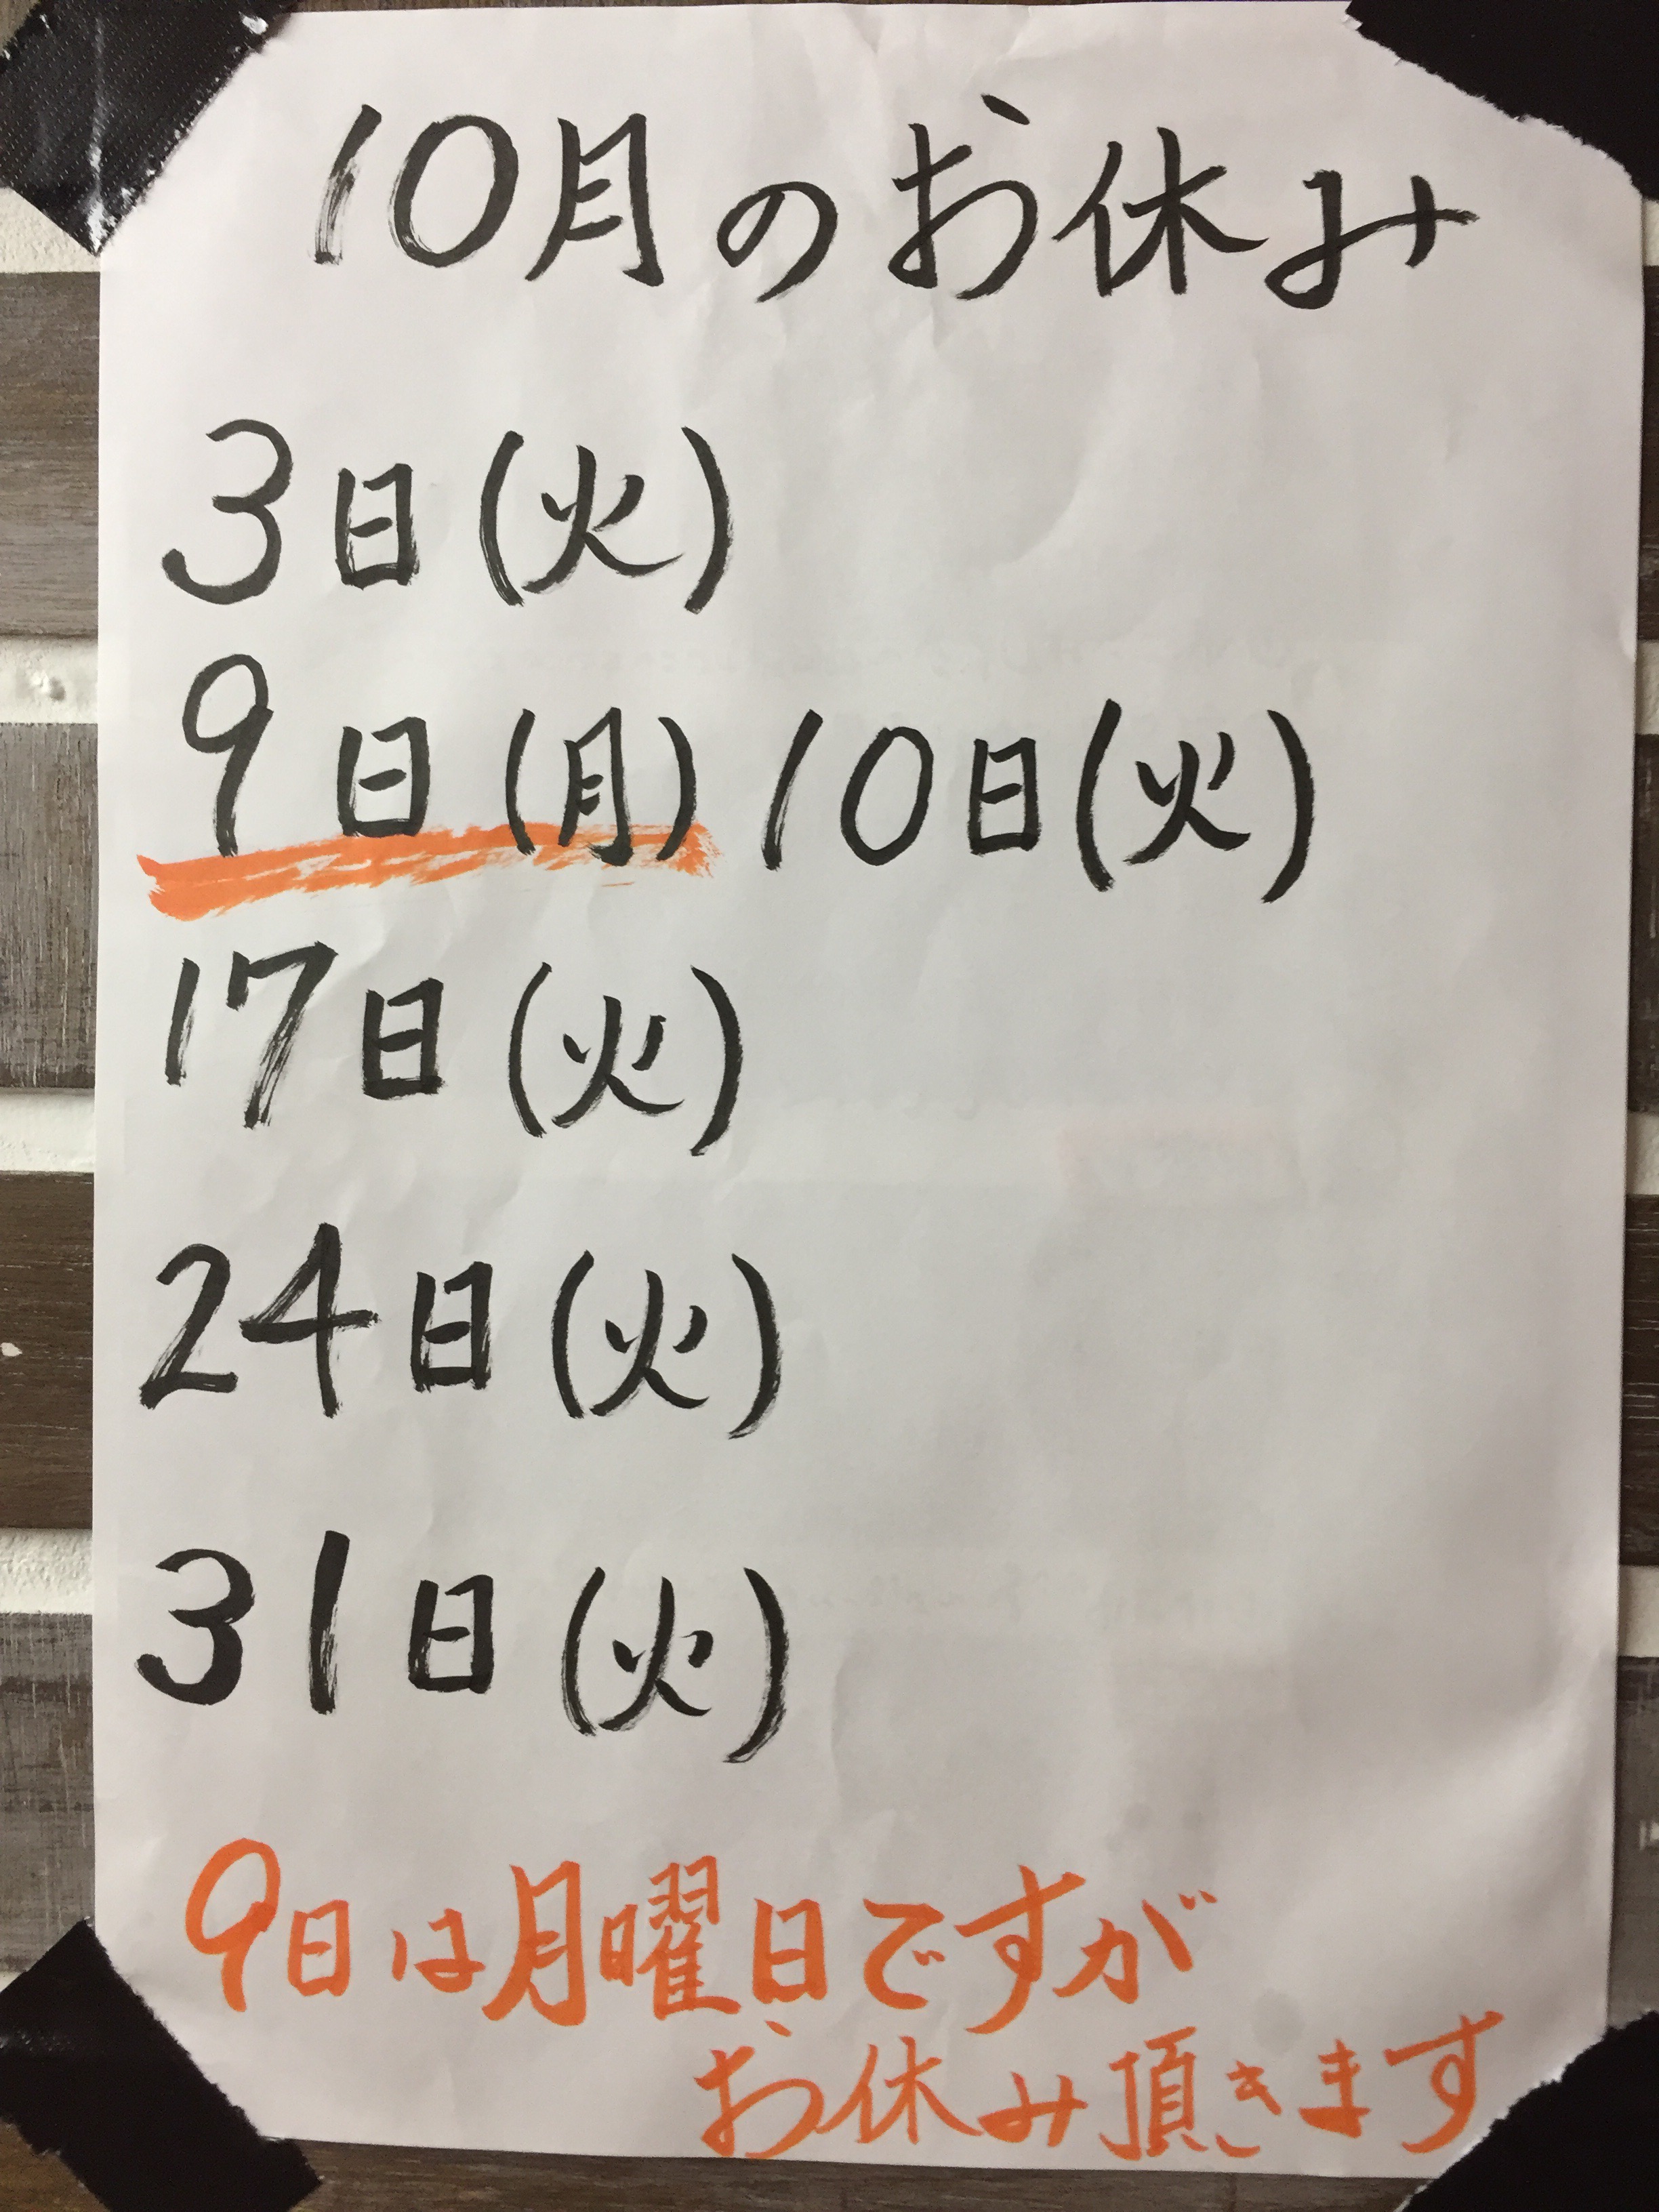 10月のお休み
3日(火)
9日(月) 10日(火)
17日(火)
24日(火)
31日(火)
9日は月曜日ですが
お休み頂きます